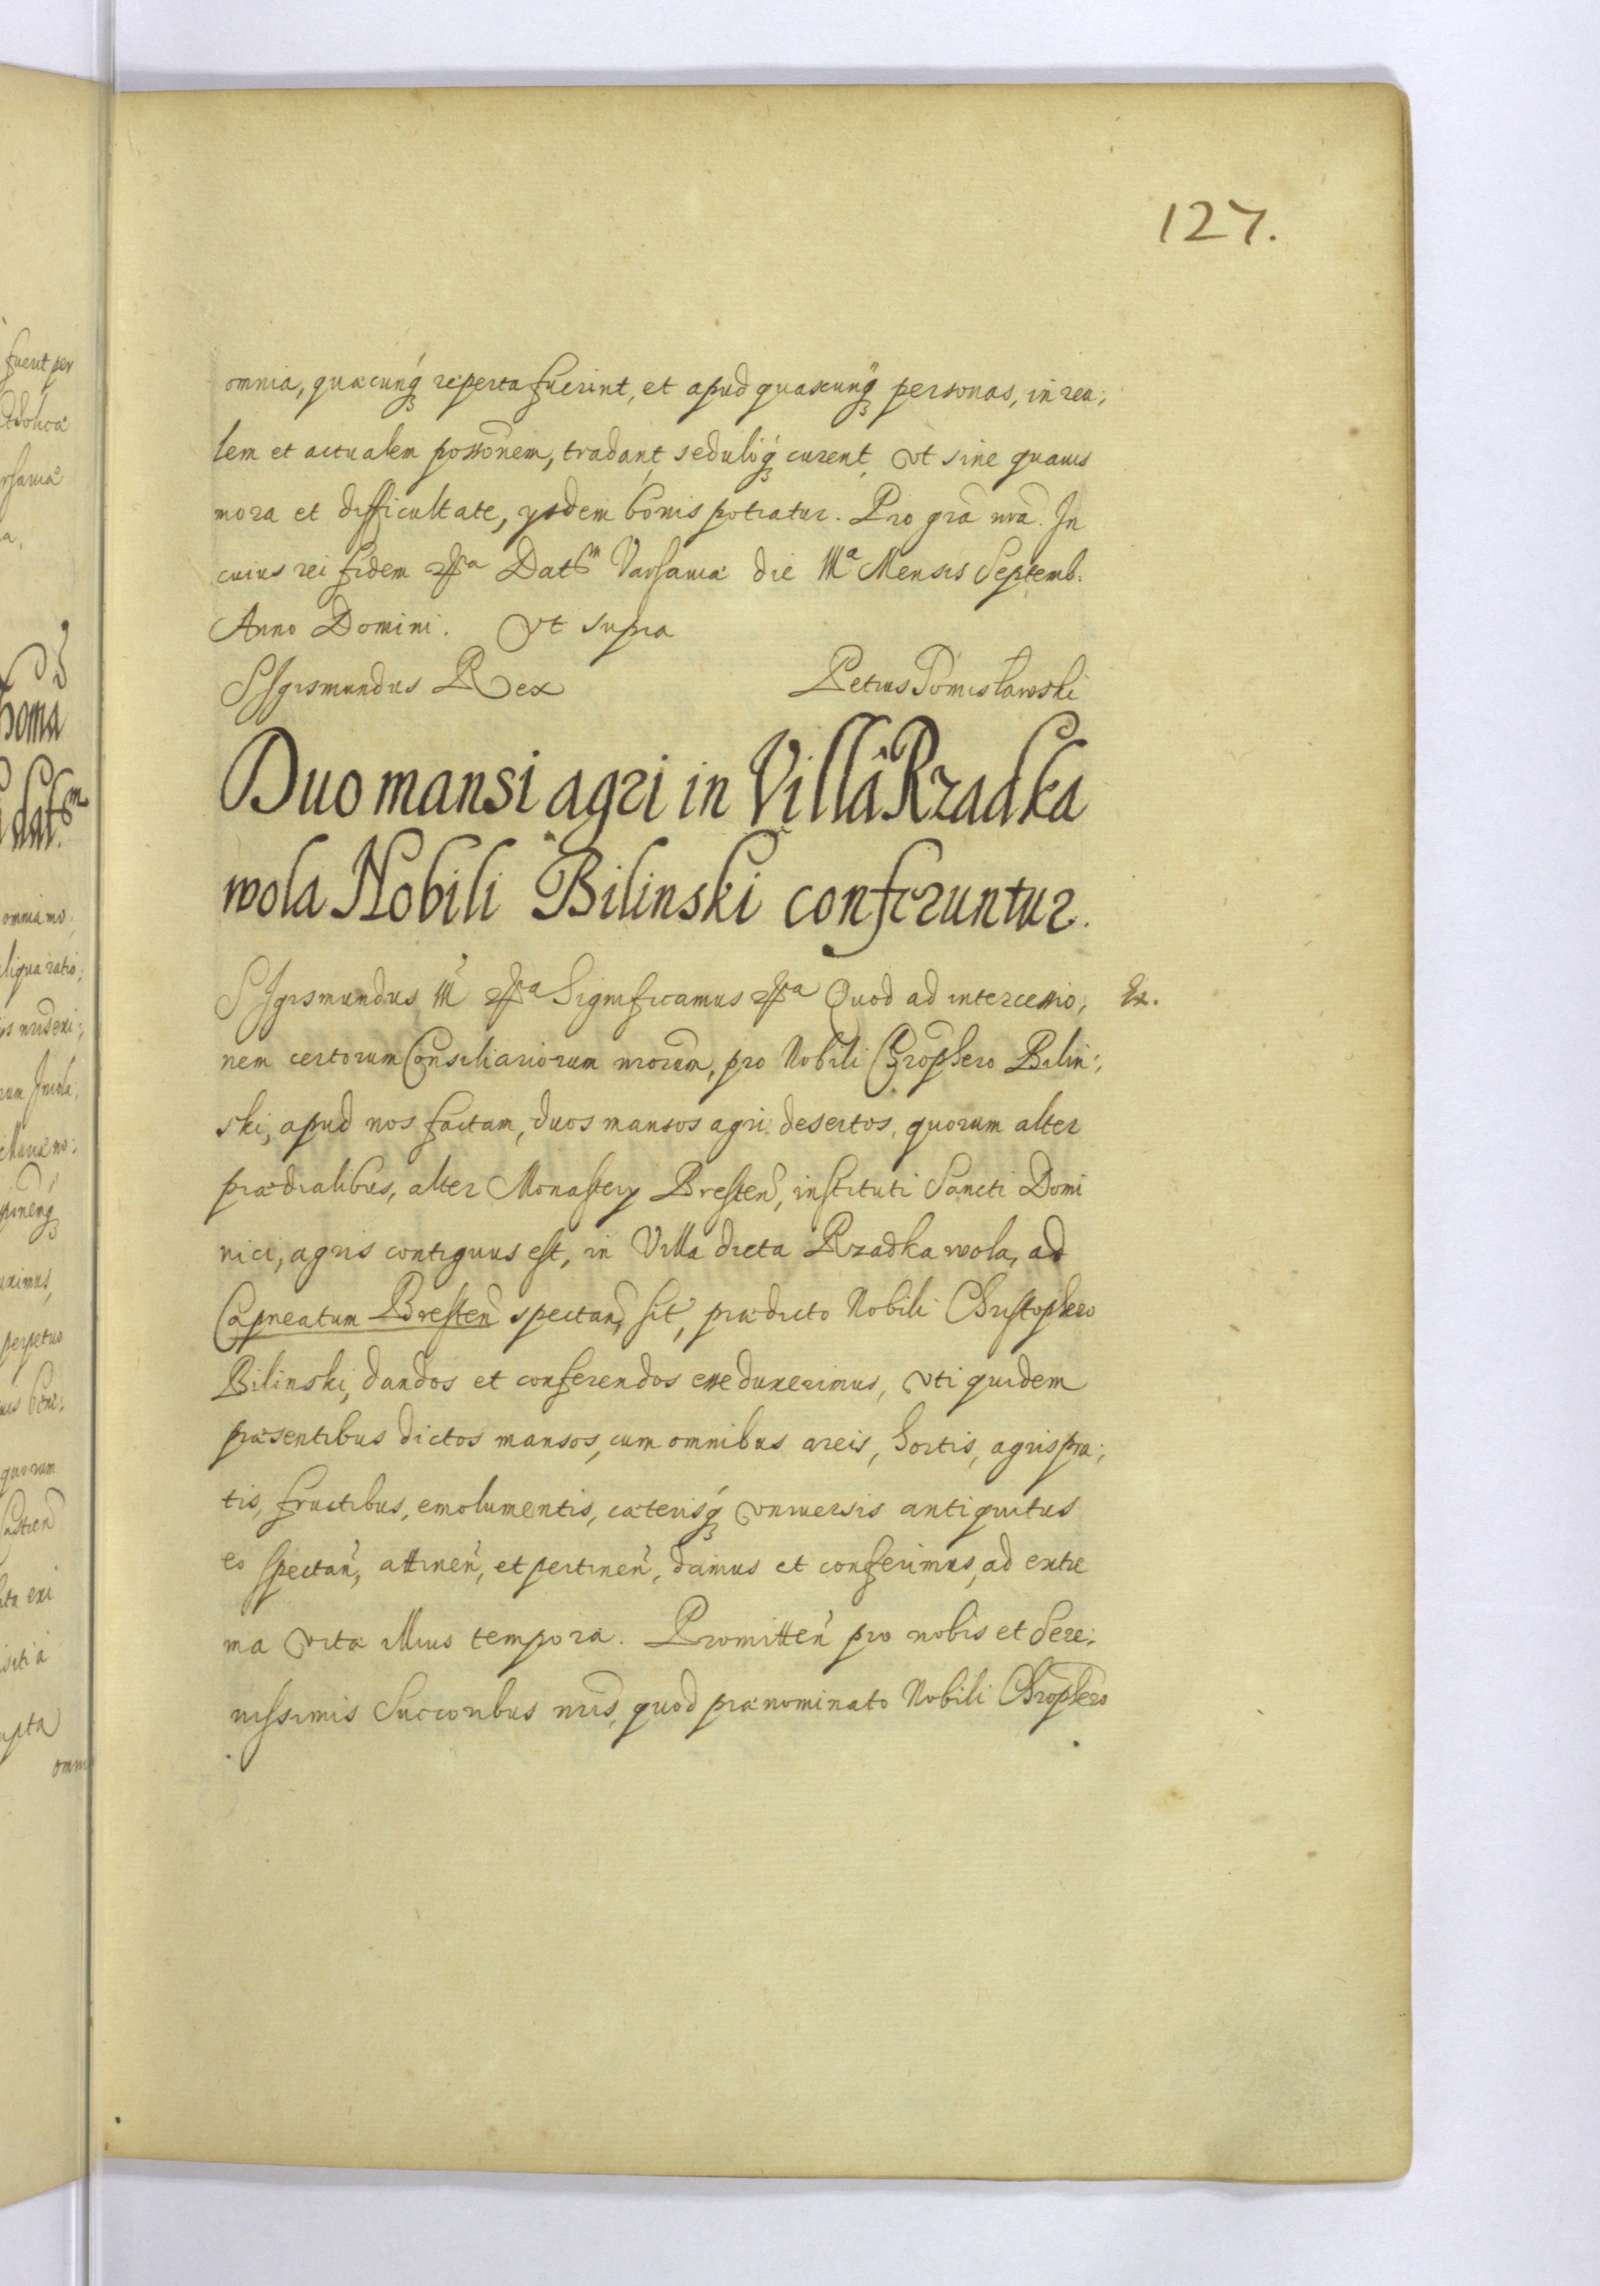 127.
omnia, quæcunq́; reperta fuerint, et apud quascunq́; personas, in rea;
lem et actualem possōnem, tradant seduloq́; curent, vt sine quauis
mora et difficultate, ysdem bonis potiatur. Pro grā nrā. In
cuius rei fidem etc Datum Varsauiæ die IIIa Mensis Septemb:
Anno Domini. Vt supra
SIgismundus Rex Petrus Tomisławski
Duo mansi agri in Villa Rzadka
wola Nobili Bilinski conferuntur.
SIgismundus III etc Significamus etc Quod ad intercessio; Ex.
nem certorum Consiliariorum nrorum, pro Nobili Chrophero Bilin;
ski, apud nos factam, duos mansos agri desertos, quorum alter
prædialibus, alter Monastery Bresteñ, instituti Sancti Domi
nici, agris contiguus est, in Villa dicta Rzadka wola, ad
Capneatum Bresteñ spectañ, sit, prædicto Nobili Christophero
Bilinski, dandos et conferendos esse duxerimus, vti quidem
præsentibus dictos mansos, cum omnibus areis, hortis, agris pra;
tis, fructibus, emolumentis, cæterisq́; vniuersis antiquitus
eo spectañ, attineñ, et pertineñ, damus et conferimus, ad extre
ma vitæ illius tempora. Promitteñ pro nobis et Sere;
nissimis Succoribus nris, quod prænominato Nobili Chrophero